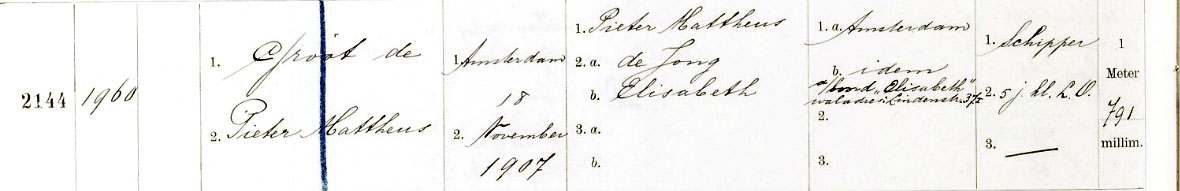 2144
1960
1. Groot de
2. Pieter Mattheus
1. Amsterdam
18
2. November
1907
1. Pieter Mattheus
2. a. de Jong
b. Elisabeth
3. a.
b.
1. a. Amsterdam
b. idem
a/boord „Elisabeth"
Lindenstr. 375
2.
3.
1. Schipper
2. 5 j. kl. L. O.
3. —
1
Meter
791
millim.